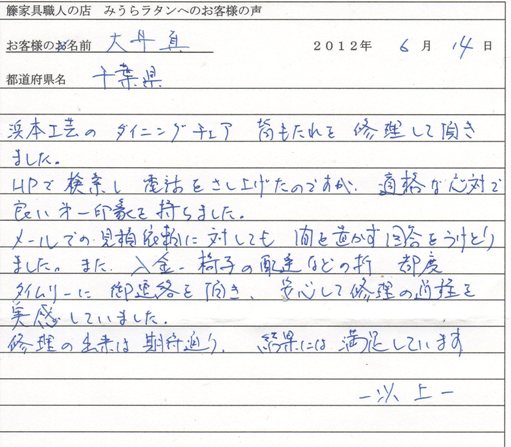 籐家具職人の店 みうらラタンへのお客様の声
お客様のお名前 大舟 真 2012年 6月 14日
都道府県名 千葉県
浜本工芸の ダイニングチェア 背もたれを 修理して頂き
ました。
HPで検索し 電話をさし上げたのですが、適格な応対で
良い第一印象を持ちました。
メールでの見積依頼に対しても 間を置かず回答をうけとり
ました。また、入金・椅子の配送などの折 都度
タイムリーに 御連絡を頂き、安心して修理の過程を
実感していました。
修理の出来は期待通り、結果には満足しています
ー以上ー